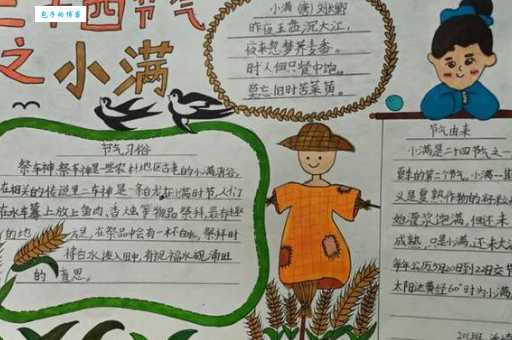 包子的博客
二十四节气
之小满
小满
时人但只餐中饱
忘忘旧时苦菜黄
节气习俗
祭车神:祭车神是一些农村地区古老的小满习俗,
在相关的传说里二车神是一条白龙在小满时节,人们
在水车基上放上鱼肉、香烛等物品祭拜,最有趣
的地方是,在祭品中会有一杯白水,祭拜时
将白水泼入田中,有祝福水源涌旺
的意思。
节气由来
小满是二十四节气之一
夏季的第二个节气。小满一其
义是夏熟作物的籽粒
始灌浆饱满,但还未
成熟,只是小满,还未大满
每年公历5月20日到22日交节
太阳达黄经60°时为小满